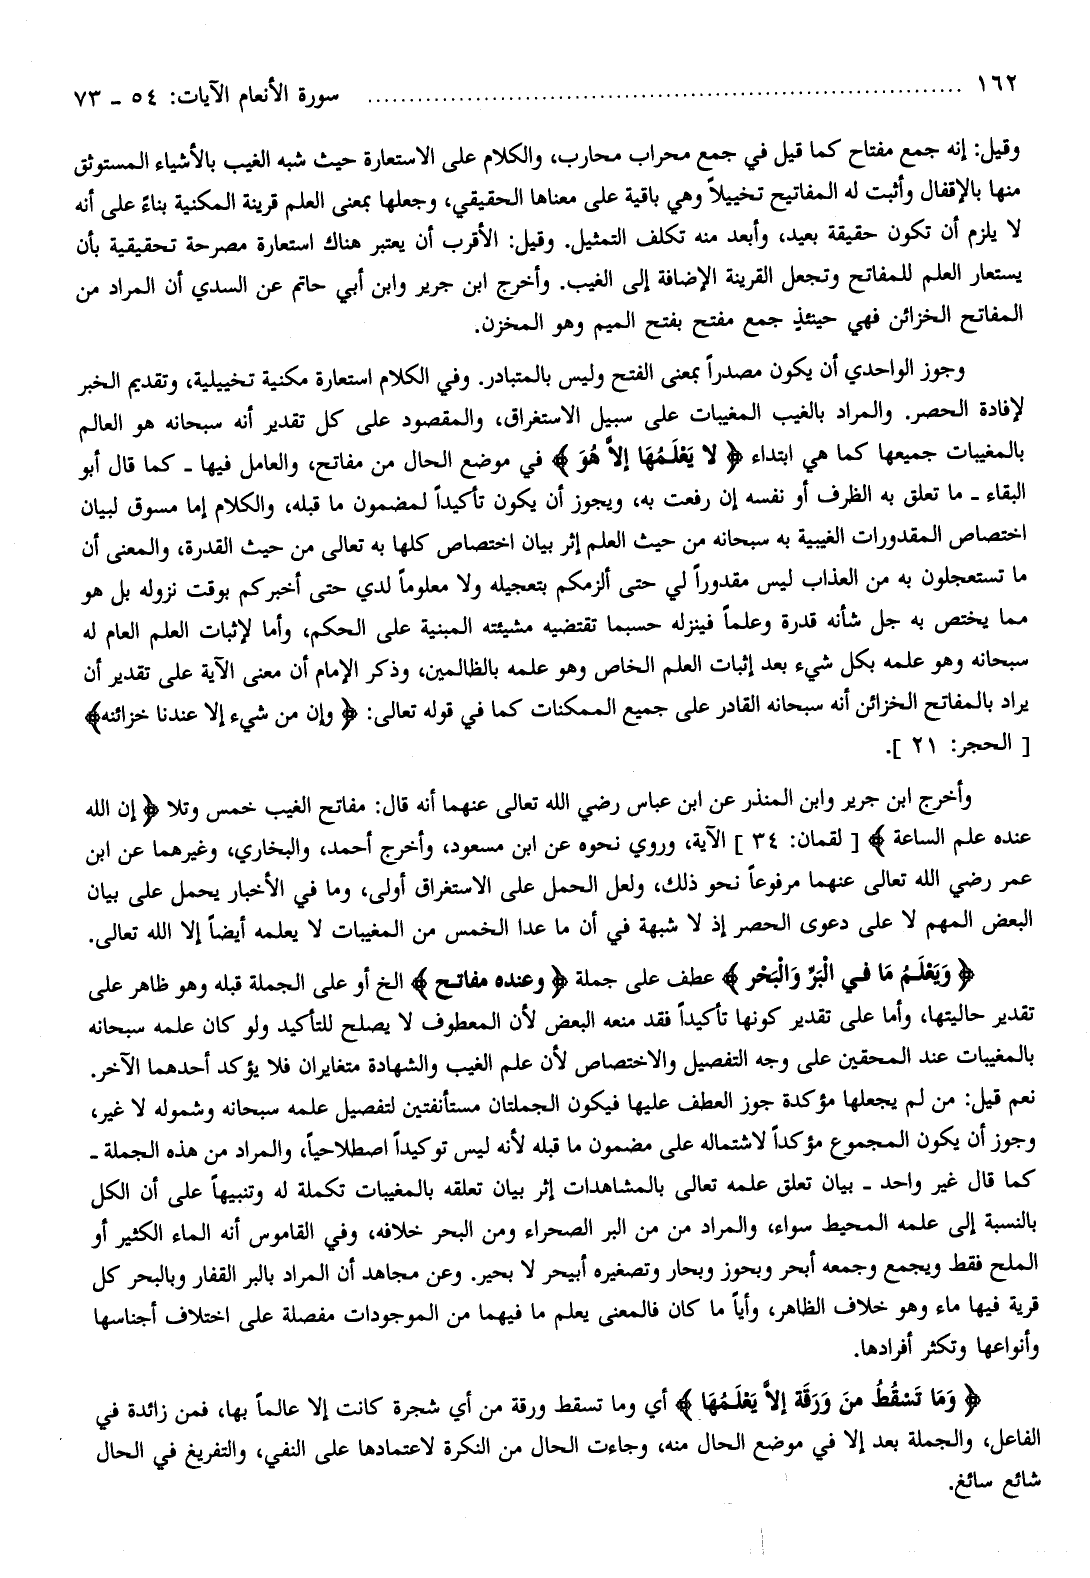 ١٦٢ ............................................................ سورة الأنعام الآيات: ٥٤ ـ ٧٣
وقيل: إنه جمع مفتاح كما قيل في جمع محراب محارب، والكلام على الاستعارة حيث شبه الغيب بالأشياء المستوثق
منها بالإقفال وأثبت له المفاتيح تخييلاً وهي باقية على معناها الحقيقي، وجعلها بمعنى العلم قرينة المكنية بناءً على أنه
لا يلزم أن تكون حقيقة بعيد، وأبعد منه تكلف التمثيل. وقيل: الأقرب أن يعتبر هناك استعارة مصرحة تحقيقية بأن
يستعار العلم للمفاتح وتجعل القرينة الإضافة إلى الغيب. وأخرج ابن جرير وابن أبي حاتم عن السدي أن المراد من
المفاتح الخزائن فهي حينئذٍ جمع مفتح بفتح الميم وهو المخزن.
وجوز الواحدي أن يكون مصدراً بمعنى الفتح وليس بالمتبادر. وفي الكلام استعارة مكنية تخييلية، وتقديم الخبر
لإفادة الحصر. والمراد بالغيب المغيبات على سبيل الاستغراق، والمقصود على كل تقدير أنه سبحانه هو العالم
بالمغيبات جميعها كما هي ابتداء ﴿ لا يَعْلَمُهَا إلاَّ هُوَ ﴾ في موضع الحال من مفاتح، والعامل فيها ـ كما قال أبو
البقاء ـ ما تعلق به الظرف أو نفسه إن رفعت به، ويجوز أن يكون تأكيداً لمضمون ما قبله، والكلام إما مسوق لبيان
اختصاص المقدورات الغيبية به سبحانه من حيث العلم إثر بيان اختصاص كلها به تعالى من حيث القدرة، والمعنى أن
ما تستعجلون به من العذاب ليس مقدوراً لي حتى ألزمكم بتعجيله ولا معلوماً لدي حتى أخبركم بوقت نزوله بل هو
مما يختص به جل شأنه قدرة وعلماً فينزله حسبما تقتضيه مشيئته المبنية على الحكم، وأما لإثبات العلم العام له
سبحانه وهو علمه بكل شيء بعد إثبات العلم الخاص وهو علمه بالظالمين، وذكر الإمام أن معنى الآية على تقدير أن
يراد بالمفاتح الخزائن أنه سبحانه القادر على جميع الممكنات كما في قوله تعالى: ﴿ وإن من شيء إلا عندنا خزائنه﴾
[ الحجر: ٢١ ].
وأخرج ابن جرير وابن المنذر عن ابن عباس رضي الله تعالى عنهما أنه قال: مفاتح الغيب خمس وتلا ﴿ إن الله
عنده علم الساعة ﴾ [ لقمان: ٣٤ ] الآية، وروي نحوه عن ابن مسعود، وأخرج أحمد، والبخاري، وغيرهما عن ابن
عمر رضي الله تعالى عنهما مرفوعاً نحو ذلك، ولعل الحمل على الاستغراق أولى، وما في الأخبار يحمل على بيان
البعض المهم لا على دعوى الحصر إذ لا شبهة في أن ما عدا الخمس من المغيبات لا يعلمه أيضاً إلا الله تعالى.
﴿ وَيَعْلَمُ مَا فِي الْبَرِّ وَالْبَحْر ﴾ عطف على جملة ﴿ وعنده مفاتح ﴾ الخ أو على الجملة قبله وهو ظاهر على
تقدير حاليتها، وأما على تقدير كونها تأكيداً فقد منعه البعض لأن المعطوف لا يصلح للتأكيد ولو كان علمه سبحانه
بالمغيبات عند المحقين على وجه التفصيل والاختصاص لأن علم الغيب والشهادة متغايران فلا يؤكد أحدهما الآخر.
نعم قيل: من لم يجعلها مؤكدة جوز العطف عليها فيكون الجملتان مستأنفتين لتفصيل علمه سبحانه وشموله لا غير،
وجوز أن يكون المجموع مؤكداً لاشتماله على مضمون ما قبله لأنه ليس توكيداً اصطلاحياً، والمراد من هذه الجملة ـ
كما قال غير واحد ـ بيان تعلق علمه تعالى بالمشاهدات إثر بيان تعلقه بالمغيبات تكملة له وتنبيهاً على أن الكل
بالنسبة إلى علمه المحيط سواء، والمراد من من البر الصحراء ومن البحر خلافه، وفي القاموس أنه الماء الكثير أو
الملح فقط ويجمع وجمعه أبحر وبحوز وبحار وتصغيره أبيحر لا بحير. وعن مجاهد أن المراد بالبر القفار وبالبحر كل
قرية فيها ماء وهو خلاف الظاهر، وأياً ما كان فالمعنى يعلم ما فيهما من الموجودات مفصلة على اختلاف أجناسها
وأنواعها وتكثر أفرادها.
﴿ وَمَا تَسْقُطُ منَ وَرَقَة إلاَّ يَعْلَمُهَا ﴾ أي وما تسقط ورقة من أي شجرة كانت إلا عالماً بها، فمن زائدة في
الفاعل، والجملة بعد إلا في موضع الحال منه، وجاءت الحال من النكرة لاعتمادها على النفي، والتفريغ في الحال
شائع سائغ.